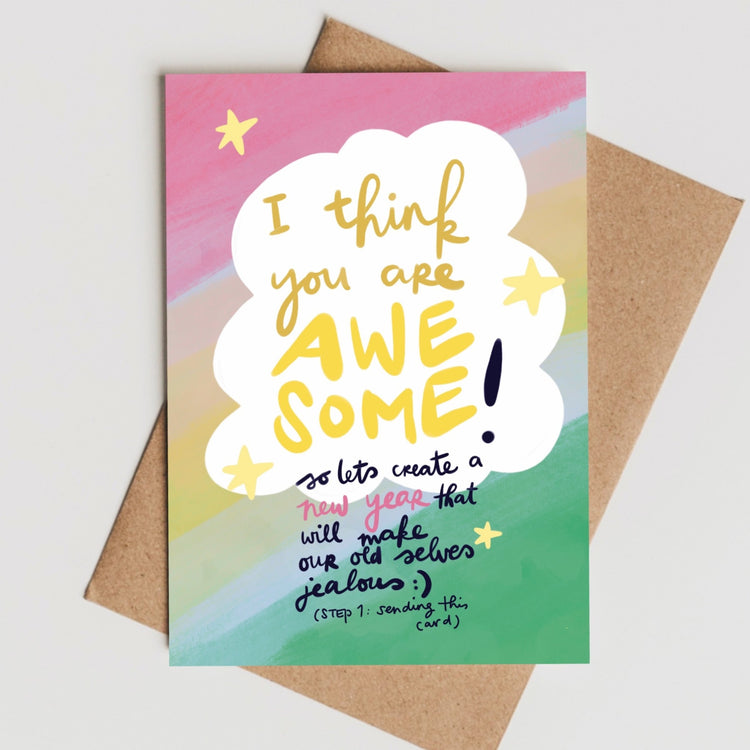 I think
you are
AWE
SOME!
so lets create a
new year that
will make
our old selves
jealous :)
(STEP 1: sending this
card)